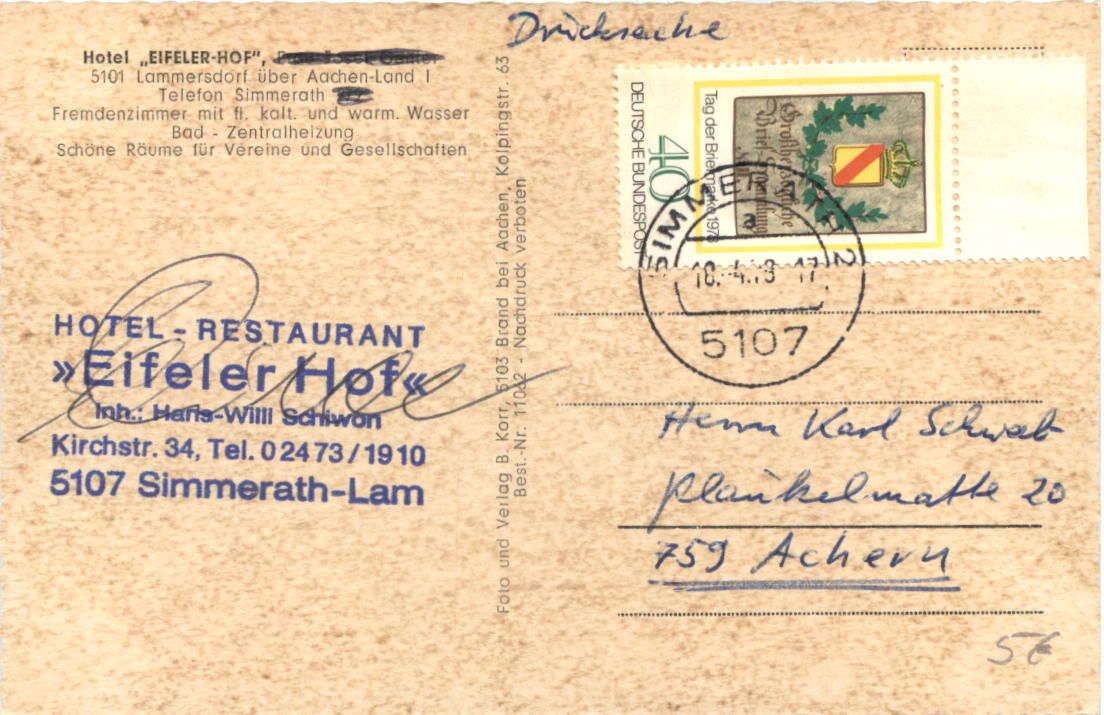 Drucksache
Hotel „EIFELER-HOF",
5101 Lammersdorf über Aachen-Land I
Telefon Simmerath
Fremdenzimmer mit fl. kalt. und warm. Wasser
Bad - Zentralheizung
Schöne Räume für Vereine und Gesellschaften
HOTEL - RESTAURANT
»Eifeler Hof«
Inh.: Hans-Willi Schiwon
Kirchstr. 34, Tel. 02473/1910
5107 Simmerath-Lam
Foto und Verlag B. Korr, 5103 Brand bei Aachen, Kolpingstr. 63
Best.-Nr. 11062 - Nachdruck verboten
DEUTSCHE BUNDESPOST
40
Tag der Briefmarke 1978
Großherzogliche
Brief
SIMMERATH 2
a
5107
Herrn Karl Schwab
Plankelmatte 20
759 Achern
5€